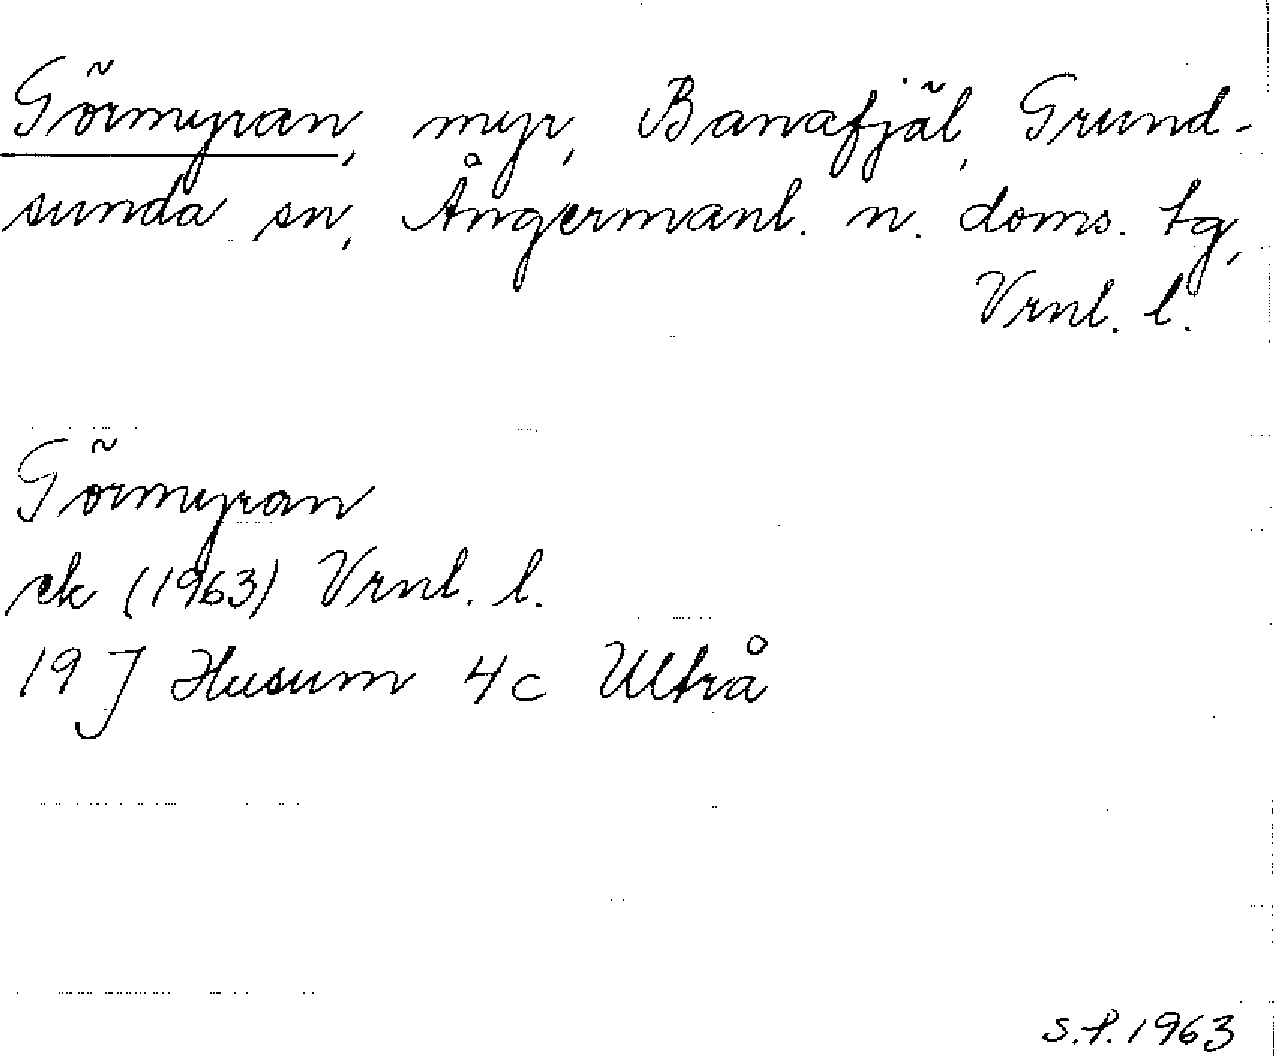 Görmyran, myr, Banafjäl, Grund-
sunda sn, Ångermanl. n. doms. tg,
Vrnl. l.
Görmyran
ek (1963) Vrnl. l.
19 J Husum 4c Ultrå
S.P. 1963